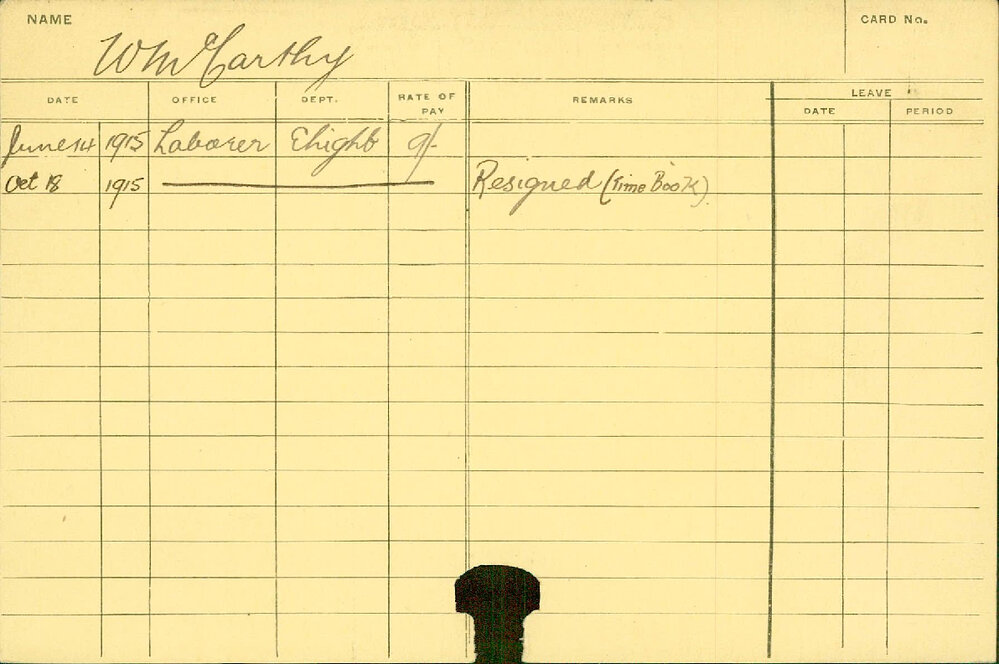 NAME
CARD No.
W McCarthy
DATE OFFICE DEPT. RATE OF PAY REMARKS LEAVE
DATE PERIOD
June 14 1915 Laborer 9/-
Oct 18 1915 Resigned (Time Book)